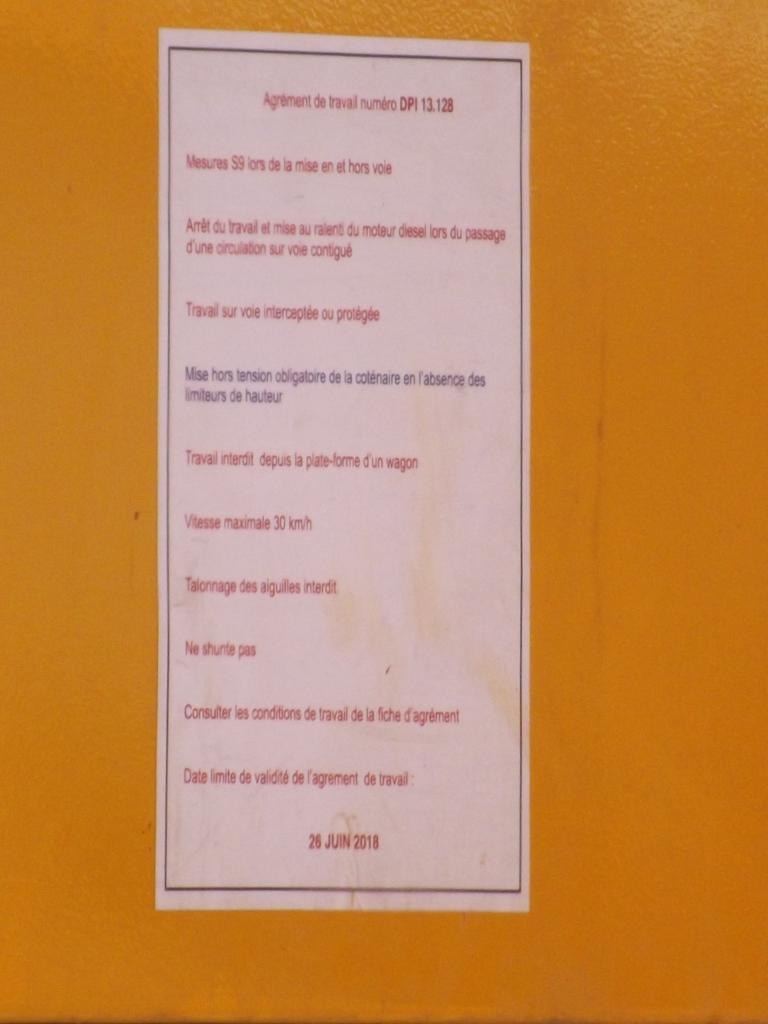 Agrément de travail numéro DPI 13.128
Mesures S9 lors de la mise en et hors voie
Arrêt du travail et mise au ralenti du moteur diesel lors du passage
d'une circulation sur voie contiguë
Travail sur voie interceptée ou protégée
Mise hors tension obligatoire de la coténaire en l'absence des
limiteurs de hauteur
Travail interdit depuis la plate-forme d'un wagon
Vitesse maximale 30 km/h
Talonnage des aiguilles interdit
Ne shunte pas
Consulter les conditions de travail de la fiche d'agrément
Date limite de validité de l'agrement de travail :
26 JUIN 2018